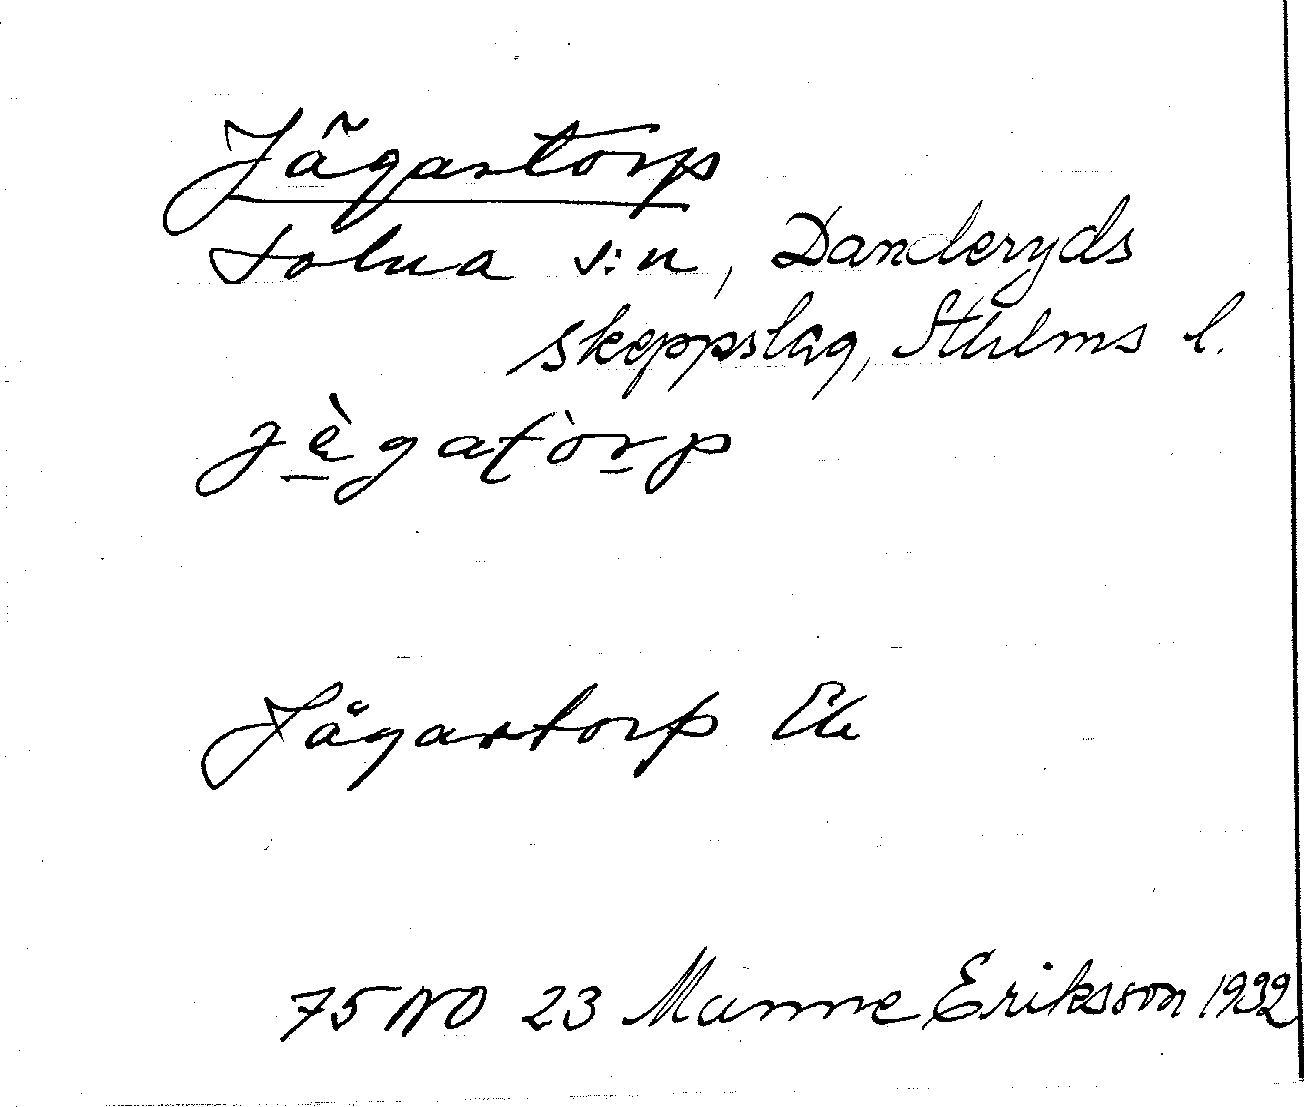 Jägartorp
Solna s:n, Danderyds
skeppslag, Sthlms l.
jègatòrp
Jägartorp Ek
75 NO 23 Manne Eriksson 1932